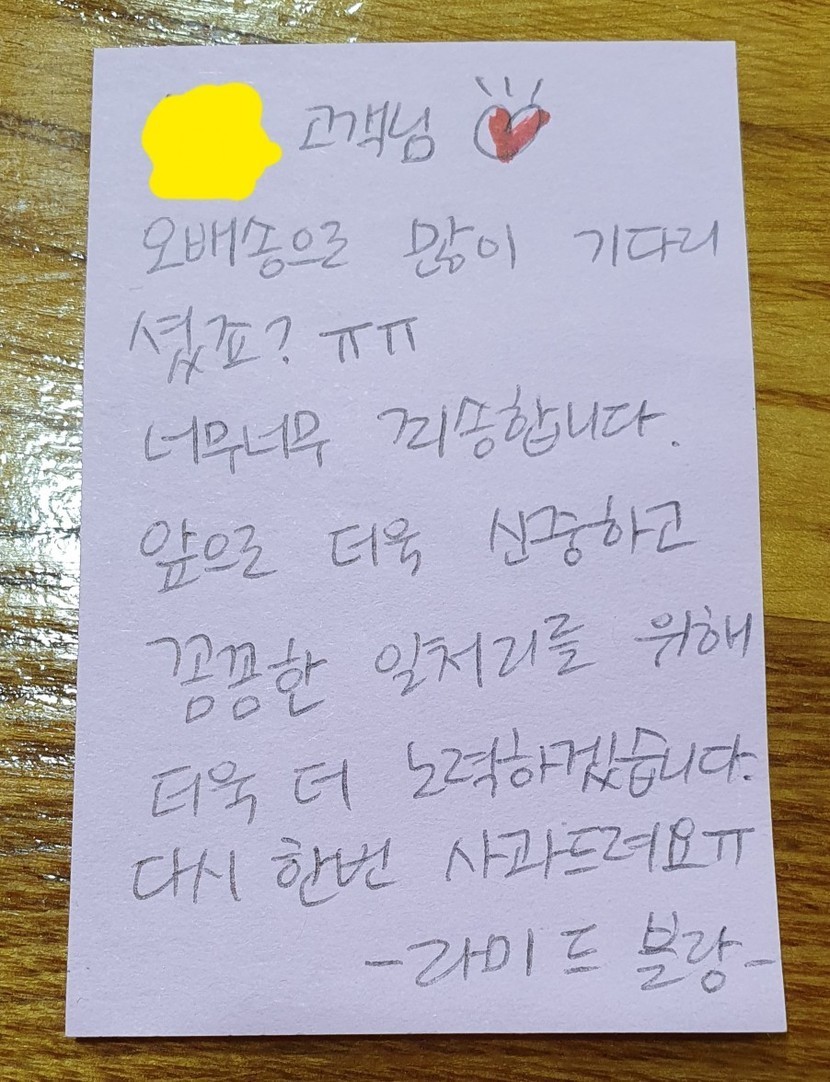 고객님
오배송으로 많이 기다리
셨죠? ㅠㅠ
너무너무 죄송합니다.
앞으로 더욱 신중하고
꼼꼼한 일처리를 위해
더욱 더 노력하겠습니다.
다시 한번 사과드려요ㅠ
-라미드 블랑-